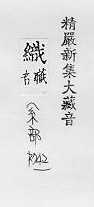 精嚴新集大藏音
織
職音
(糸部